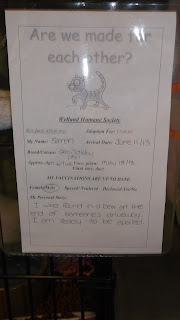 Are we made for
each other?
Welland Humane Society
Adoption Fee:
My Name: Simon Arrival Date: June 11/13
Breed/Colour: Grey Tabby
Approx. Age: Vaccines given: May 14/13
MY VACCINATIONS ARE UP TO DATE
Female/Male Spayed/Neutered Declawed Yes/No
My Personal Story:
I was found in a box at the
end of someone's driveway.
I am ready to be spoiled.